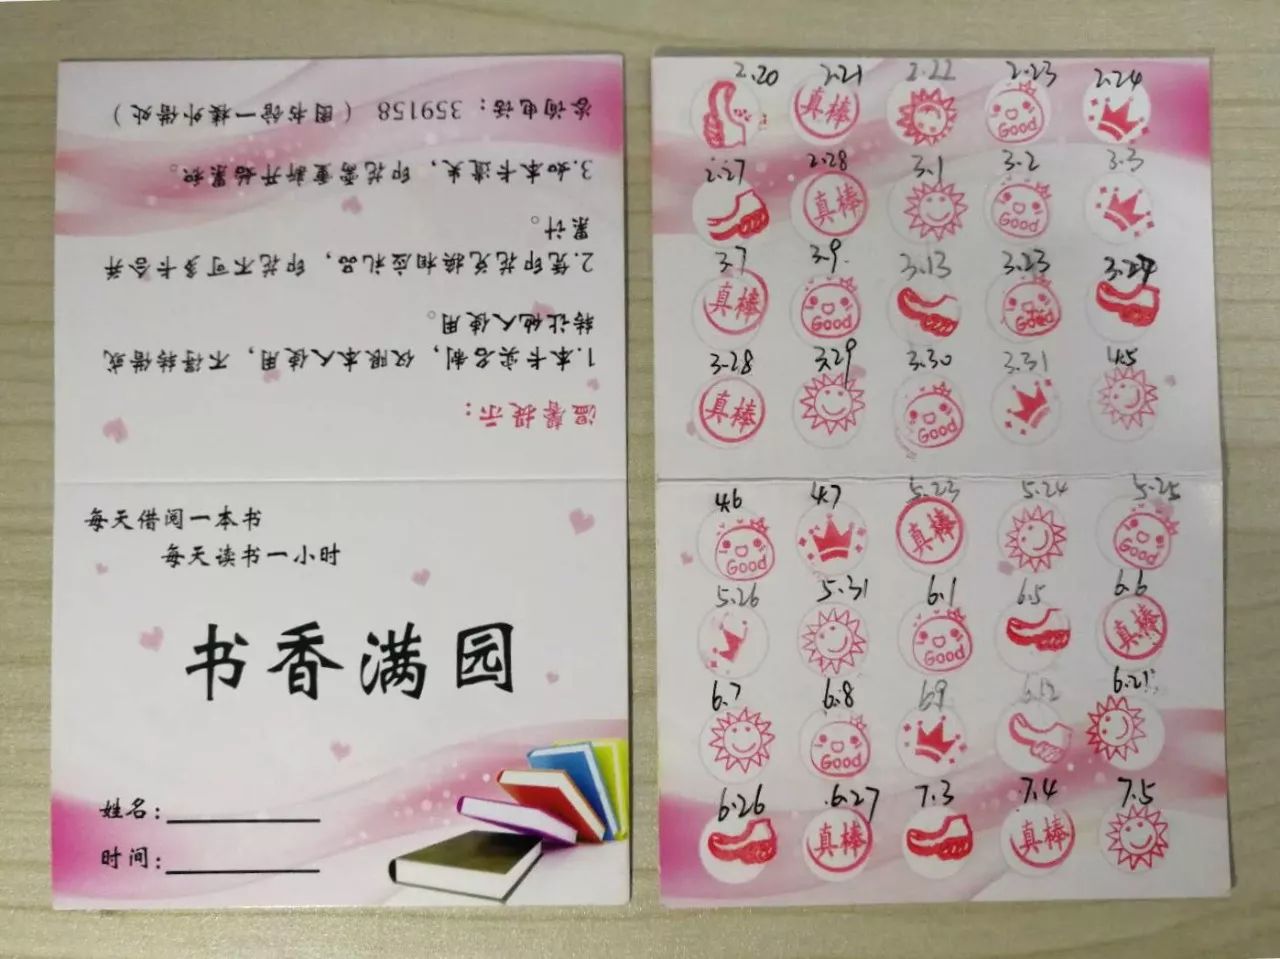 咨询电话：359158（图书馆一楼外借处）
3.如本卡遗失，印花需重新开始累积。
累计。
2.凭印花兑换相应礼品，印花不可多卡合并
转让他人使用。
1.本卡实名制，仅限本人使用，不得转借或
温馨提示：
每天借阅一本书
每天读书一小时
书香满园
姓名：
时间：
2.20 2.21 2.22 2.23 2.24
真棒 Good
2.27 2.28 3.1 3.2 3.3
真棒 Good
3.7 3.9 3.13 3.23 3.27
真棒 Good Good
3.28 3.29 3.30 3.31 4.5
真棒 Good
4.6 4.7 5.23 5.24 5.25
Good 真棒 Good
5.26 5.31 6.1 6.5 6.6
Good 真棒
6.7 6.8 6.9 6.12 6.21
Good
6.26 6.27 7.3 7.4 7.5
真棒 真棒